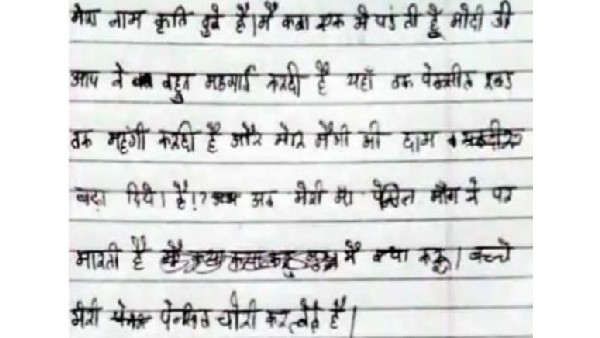 मेरा नाम कृति दुबे है। मै कक्षा एक मे पड़ती हूँ मोदी जी
आप ने बहुत महगाई करदी है यहाँ तक पेन्सील रबड़
तक महंगी करदी है और मेरि मैगी की दाम
बढ़ा दिये। है!? अब मेरी मा पेन्सिल माँगने पर
मारती है मै क्या करू। बच्चे
मेरी पेन्सिल चोरी कर लेते है।